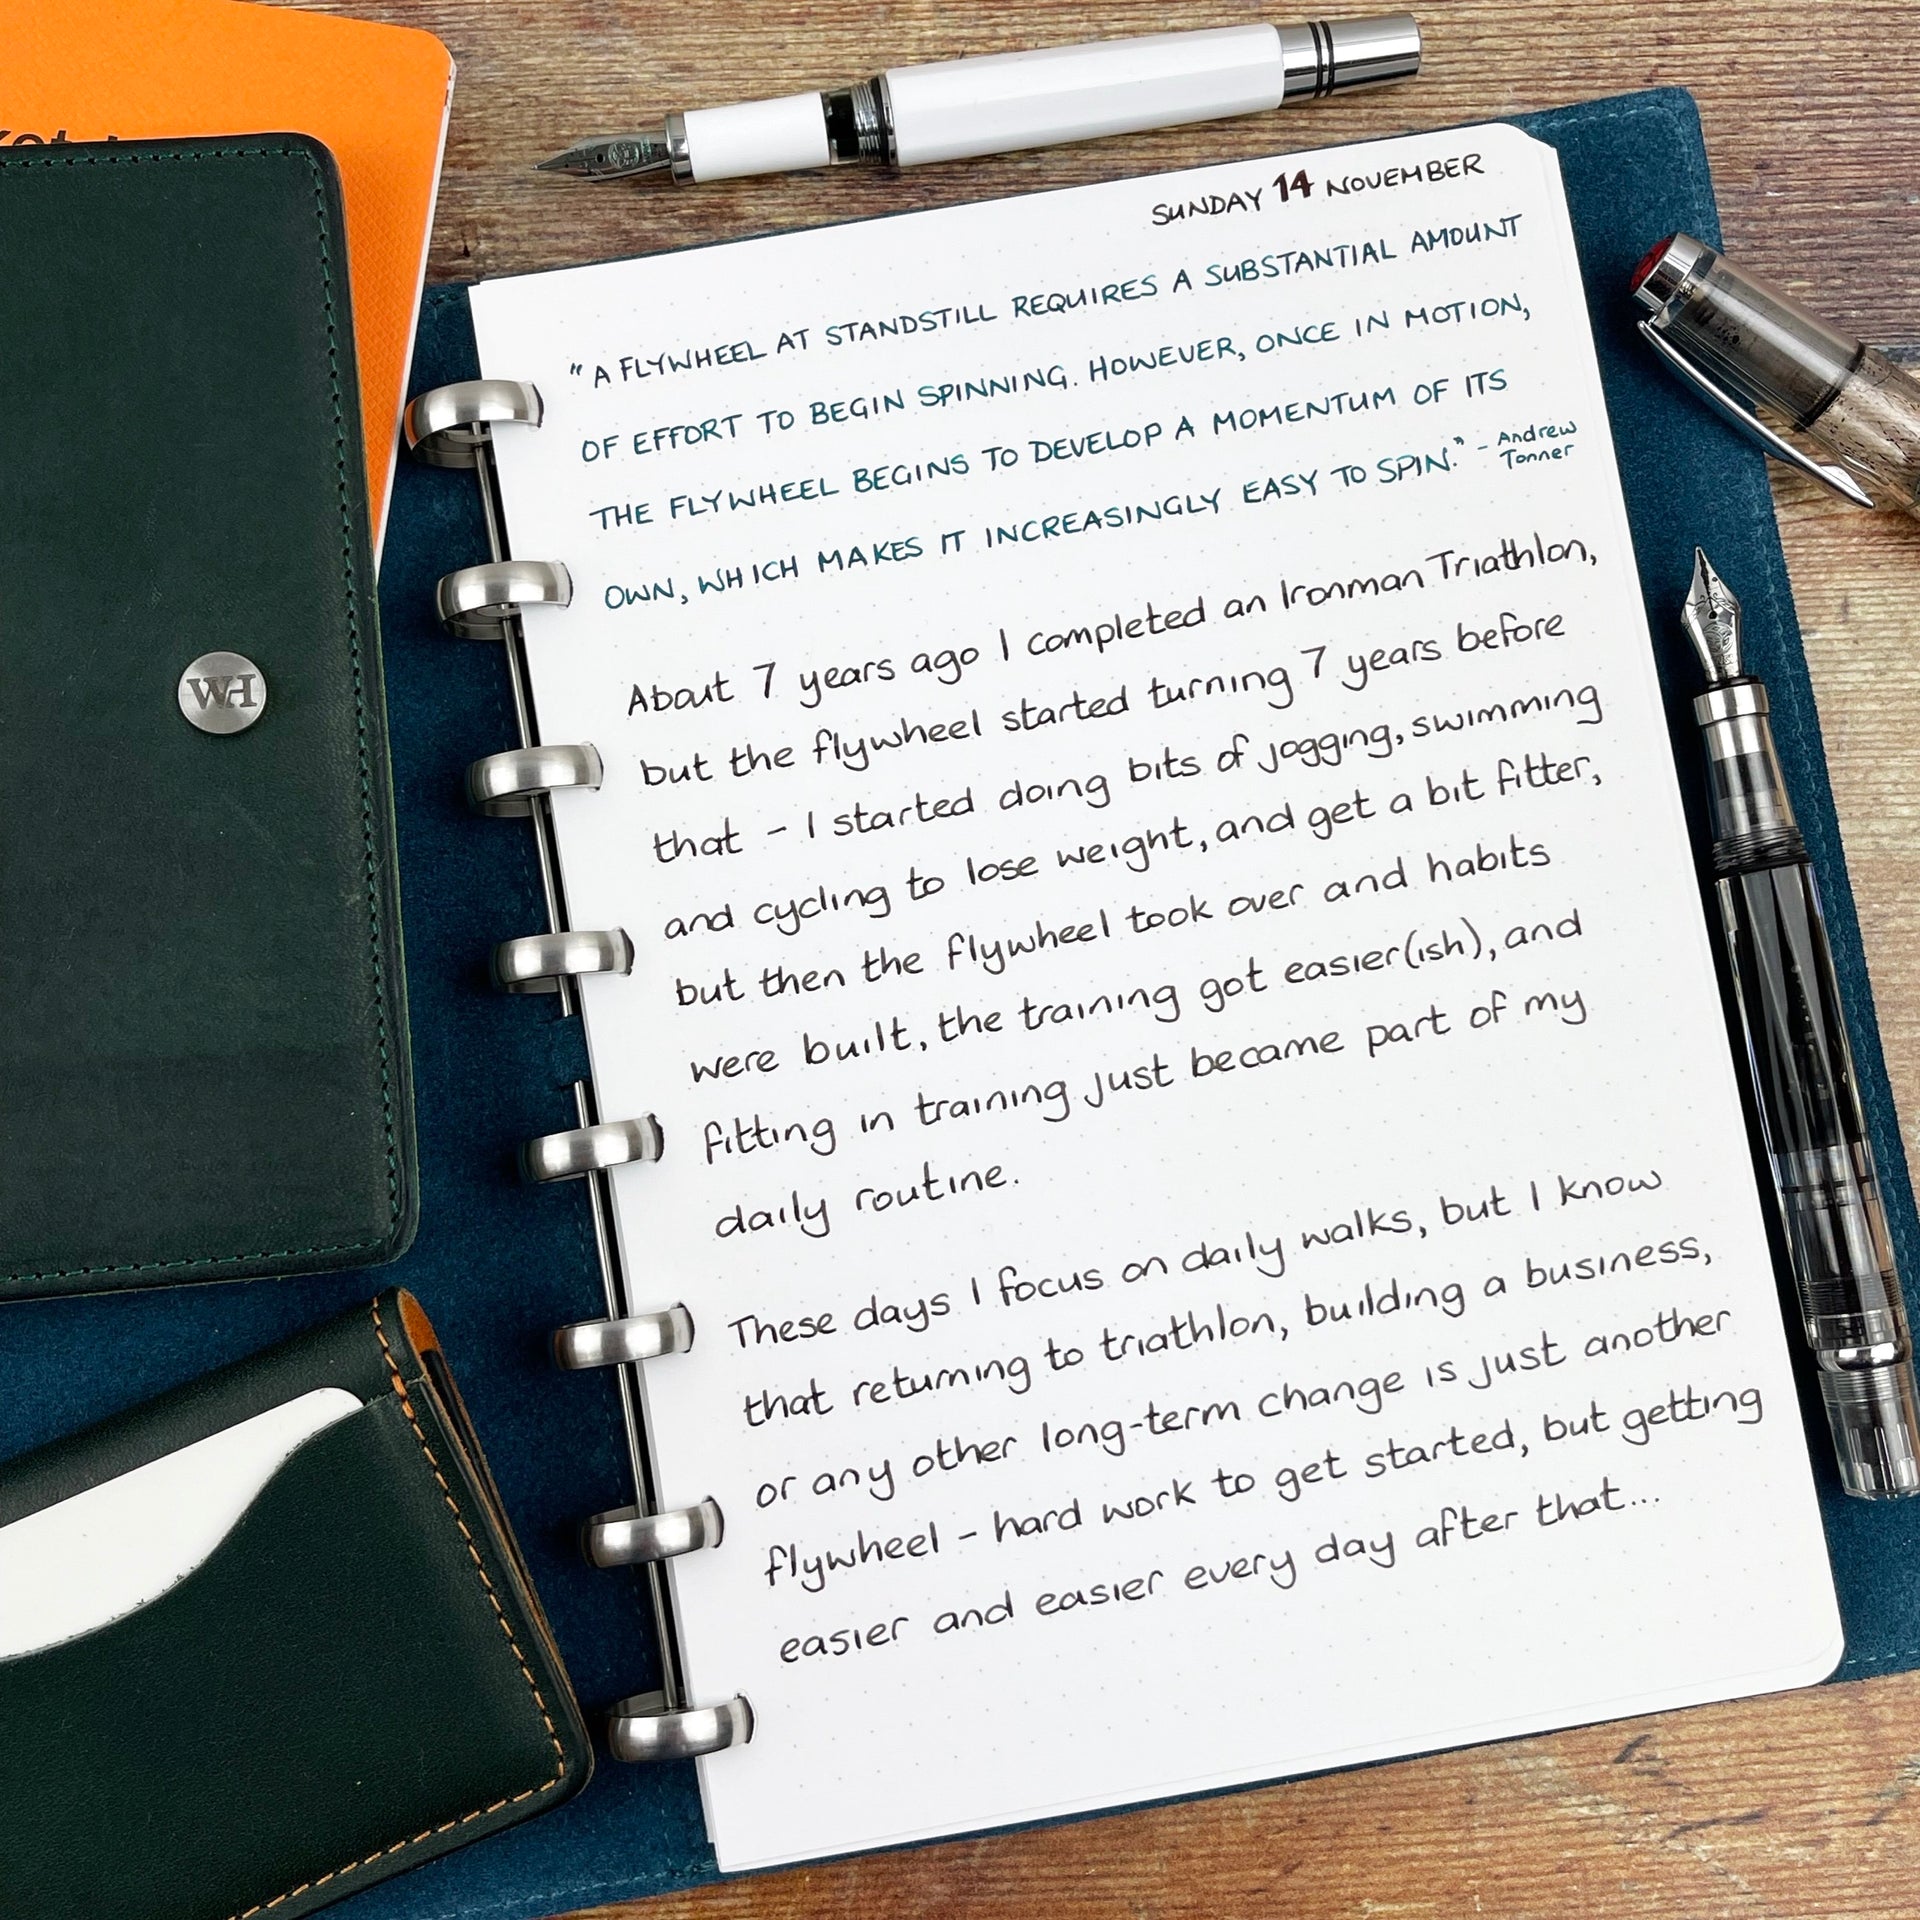 SUNDAY 14 NOVEMBER
"A FLYWHEEL AT STANDSTILL REQUIRES A SUBSTANTIAL AMOUNT
OF EFFORT TO BEGIN SPINNING. HOWEVER, ONCE IN MOTION,
THE FLYWHEEL BEGINS TO DEVELOP A MOMENTUM OF ITS
OWN, WHICH MAKES IT INCREASINGLY EASY TO SPIN." - Andrew
Tonner
About 7 years ago I completed an Ironman Triathlon,
but the flywheel started turning 7 years before
that - I started doing bits of jogging, swimming
and cycling to lose weight, and get a bit fitter,
but then the flywheel took over and habits
were built, the training got easier(ish), and
fitting in training just became part of my
daily routine.
These days I focus on daily walks, but I know
that returning to triathlon, building a business,
or any other long-term change is just another
flywheel - hard work to get started, but getting
easier and easier every day after that...
WH